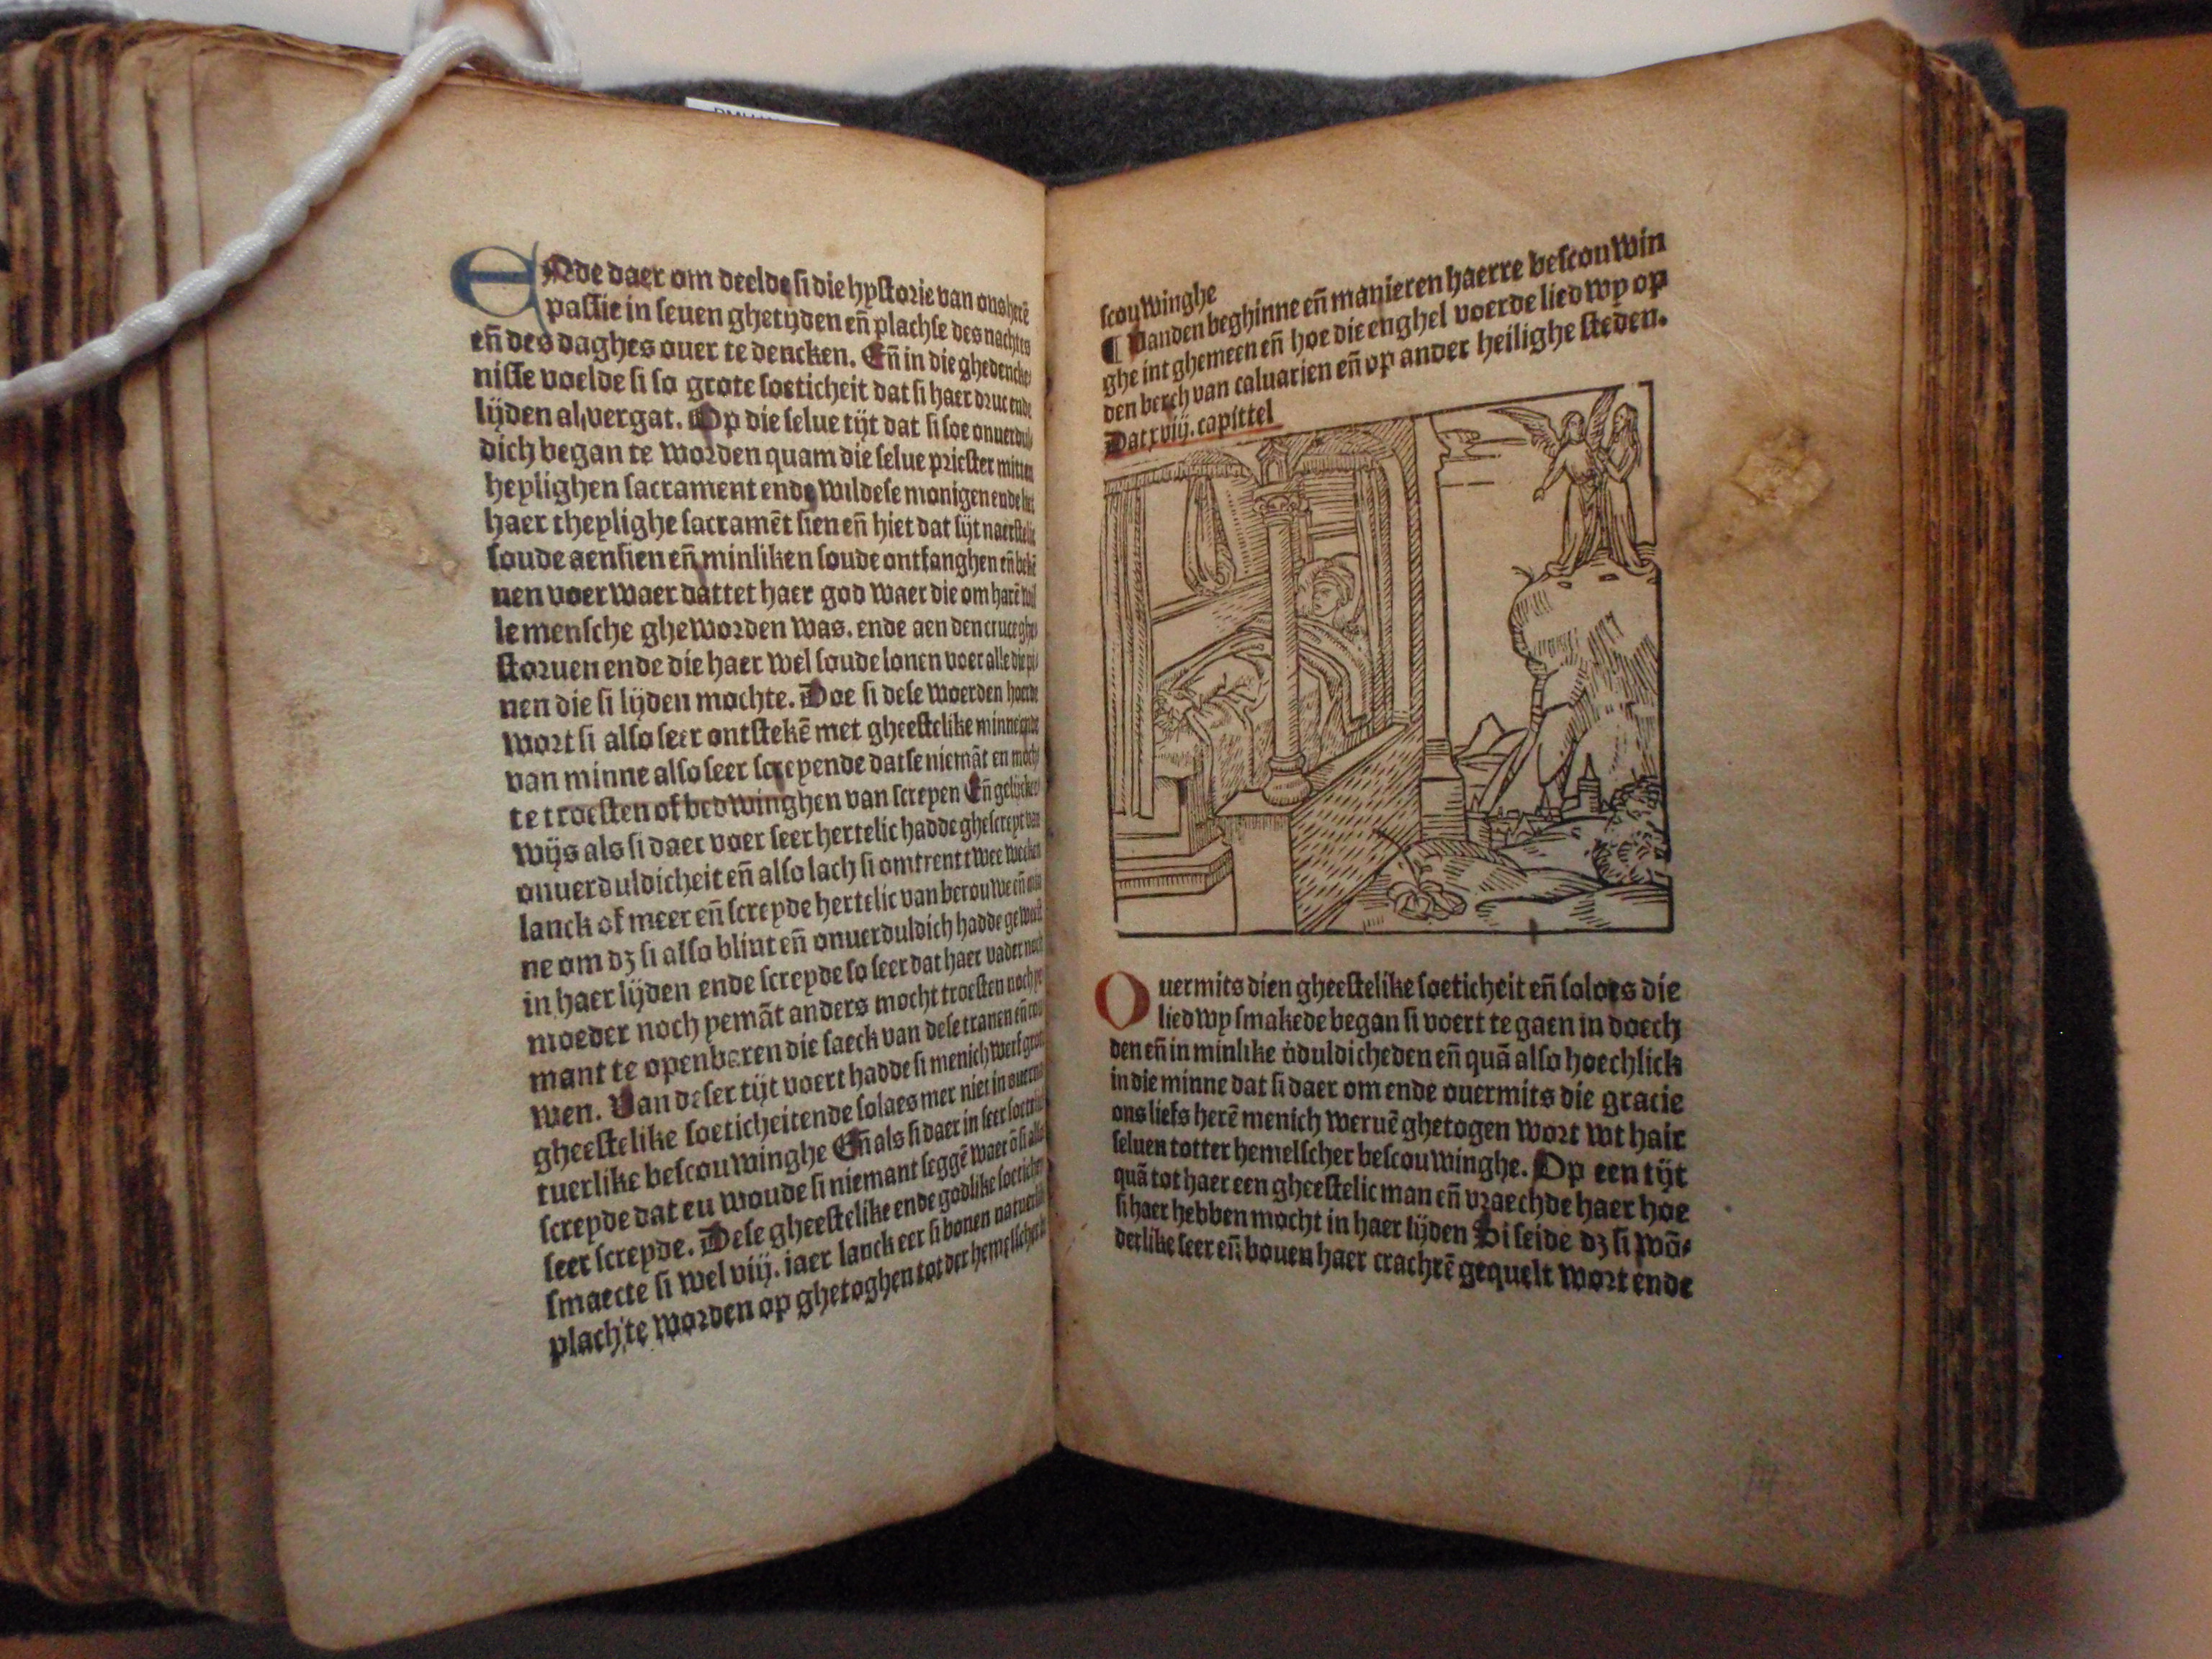 Ende daer om deelde si die hystorie van ons herē
passie in seuen ghetijden eñ plachse des nachtes
eñ des daghes ouer te dencken. Eñ in die ghedencke
nisse voelde si so grote soeticheit dat si haer druc ende
lijden al vergat. Op die selue tijt dat si soe onuerdul
dich began te worden quam die selue priester mitten
heylighen sacrament ende wildese monigen ende
haer theylighe sacramēt sien eñ hiet dat sijt naerstelic
soude aensien eñ minliken soude ontfanghen eñ bekē
nen voer waer dattet haer god waer die om harē wil
le mensche gheworden was. ende aen den cruce ghe
storuen ende die haer wel soude lonen voer alle die pi
nen die si lijden mochte. Doe si dese woerden hoerde
wort si also seer ontstekē met gheestelike minne ende
van minne also seer screpende datse niemāt en mocht
te troesten of bedwinghen van screyen Eñ gelijcker
wijs als si daer voer seer hertelic hadde ghescreyt van
onuerduldicheit eñ also lach si omtrent twee weken
lanck of meer eñ screyde hertelic van berouwe eñ min
ne om dz si also blint eñ onuerduldich hadde geweest
in haer lijden ende screyde so seer dat haer vader noch
moeder noch yemāt anders mocht troesten noch ye
mant te openbaren die saeck van dese tranen eñ rou
wen. Van deser tijt voert hadde si menich werf groet
gheestelike soeticheit ende solaes mer niet in ouerna
tuerlike bescouwinghe Eñ als si daer in seer soetelic
screyde dat eu woude si niemant seggē waer ō si also
seer screyde. Dese gheestelike ende godlike soeticheit
smaecte si wel viij. iaer lanck eer si bouen natuerlic
plach te worden op ghetoghen tot der hemelscher be
scouwinghe
¶ Vanden beghinne eñ manieren haerre bescouwin
ghe int ghemeen eñ hoe die enghel voerde liedwy op
den berch van caluarien eñ op ander heilighe steden.
Dat xviij. capittel
Ouermits dien gheestelike soeticheit eñ solaes die
liedwy smakede began si voert te gaen in doech
den eñ in minlike v̄duldicheden eñ quā also hoechlick
in die minne dat si daer om ende ouermits die gracie
ons liefs herē menich weruē ghetogen wort wt hair
seluen totter hemelscher bescouwinghe. Op een tijt
quā tot haer een gheestelic man eñ vraechde haer hoe
si haer hebben mocht in haer lijden Si seide dz si wō⸗
derlike seer eñ bouen haer crachtē gequelt wort ende